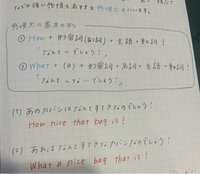 などの強い気持ちを表す文を感嘆文といいます。
感嘆文の基本の形
① How + 形容詞(副詞) + 主語 + 動詞!
「なんて〜でしょう!」
② What + (a) + 形容詞 + 名詞 + 主語 + 動詞!
「なんて〜な〜でしょう!」
(1) あのカバンはなんてすてきなのでしょう!
How nice that bag is!
(2) あれはなんてすてきなカバンなのでしょう!
What a nice bag that is!